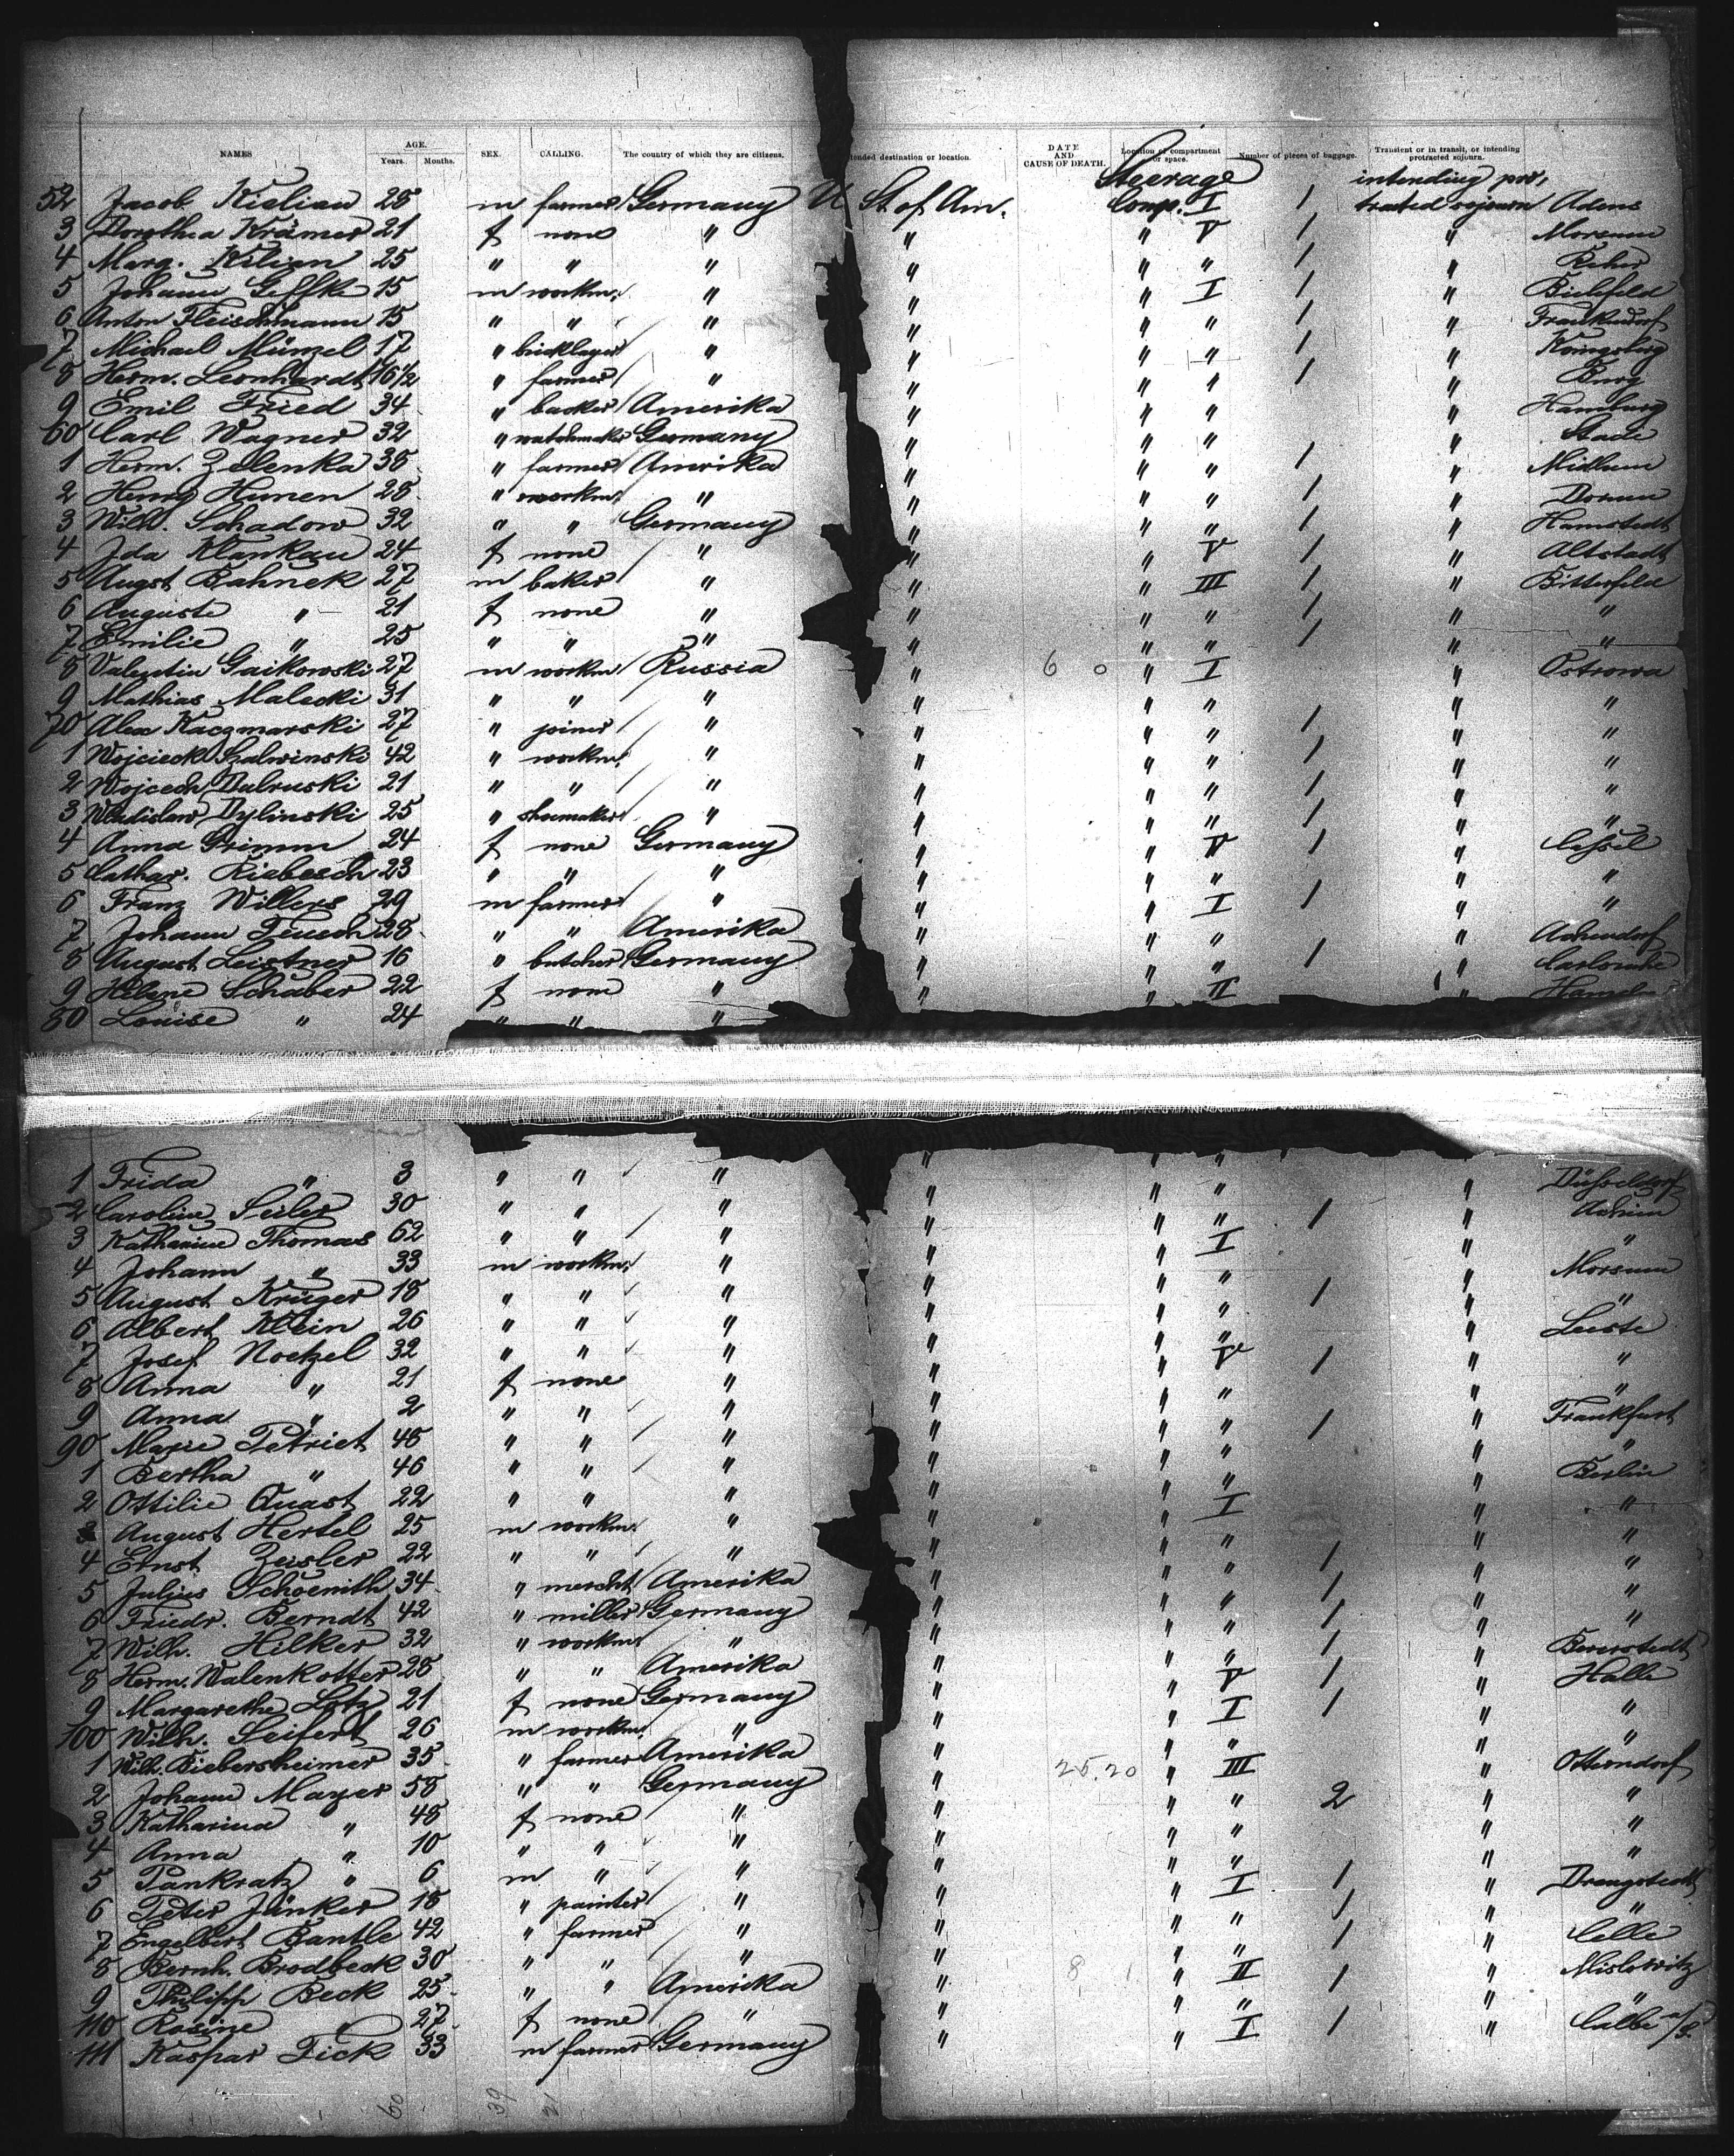 NAMES AGE. Years. Months. SEX. CALLING. The country of which they are citizens. ended destination or location. DATE AND CAUSE OF DEATH. Location of compartment or space. Number of pieces of baggage. Transient or in transit, or intending protracted sojourn.
Steerage intending pro,
52 Jacob Kielian 28 m farmer Germany U St. of Am. Comp. I 1 tracted sojourn Adens
3 Dorothea Krämer 21 f none " " " V 1 " Morsum
4 Marg. Kilian 25 " " " " " " 1 "
5 Johann Geffke 15 m workm. " " " I 1 " Bielefeld
6 Anton Fleischmann 15 " " " " " " 1 " Frankendorf
7 Michael Münzel 17 " bricklayer " " " " 1 " Königsberg
8 Herm. Leonhardt 16 1/2 " farmer " " " " 1 " Burg
9 Emil Fried 34 " backer Amerika " " " " Hamburg
60 Carl Wagner 32 " watchmaker Germany " " " " Stade
1 Herm. Zelenka 38 " farmer Amerika " " " 1 " Midlum
2 Henry Hunen 28 " workm. " " " " 1 " Dorum
3 Wilh. Schadow 32 " " Germany " " " 1 " Hamstedt
4 Ida Klankau 24 f none " " " V 1 " Altstadt
5 Augst Bahnek 27 m baker " " " III 1 " Bitterfeld
6 Auguste " 21 f none " " " " 1 " "
7 Emilie " 25 " " " " " " 1 " "
8 Valentin Gaikowski 27 m workm Russia " 6 0 " I " Ostrowa
9 Mathias Malecki 31 " " " " " " " "
70 Alex Kacgmarski 27 " joiner " " " " 1 " "
1 Wojcieck Szalwinski 42 " workm. " " " " 1 " "
2 Wojcech Dulruski 21 " " " " " " 1 " "
3 Wladislaw Dylinski 25 " shoemaker " " " " 1 " "
4 Anna Grimm 24 f none Germany " " V 1 " Cassel
5 Cathar. Riebesch 23 " " " " " " " "
6 Franz Willers 29 m farmer " " " I 1 " "
7 Johann Teusch 28 " " Amerika " " " " Achendorf
8 August Leistner 16 " butcher Germany " " " 1 " Carlsruhe
9 Helene Schaber 22 f none " " " II "
80 Louise " 24 " " "
1 Frida " 3 " " " " " " " Düsseldorf
2 Caroline Seiler 30 " " " " " " 1 " Achim
3 Katharine Thomas 62 " " " " " I " "
4 Johann " 33 m workm. " " " " " Morsum
5 August Krüger 18 " " " " " " 1 " "
6 Albert Klein 26 " " " " " " " Leeste
7 Josef Noetzel 32 " " " " " V 1 " "
8 Anna " 21 f none " " " " " "
9 Anna " 2 " " " " " " " Frankfurt
90 Marie Petriet 48 " " " " " " 1 " "
1 Bertha " 46 " " " " " " " Berlin
2 Ottilie Quast 22 " " " " " I " "
3 August Hertel 25 m workm. " " " " " "
4 Ernst Zeisler 22 " " " " " " 1 " "
5 Julius Schoenith 34 " mercht Amerika " " " 1 " "
6 Friedr. Berndt 42 " miller Germany " " " 1 " "
7 Wilh. Hilker 32 " workm. " " " " 1 " Beverstedt
8 Herm. Walenkotter 28 " " Amerika " " V 1 " Halle
9 Margarethe Lotz 21 f none Germany " " I 1 " "
100 Wilh. Seifert 26 m workm. " " " " " "
1 Wilh. Biebersheimer 35 " farmer Amerika " 25.20 " III " Otterndorf
2 Johann Mayer 58 " " Germany " " " 2 " "
3 Katharina " 48 f none " " " " " "
4 Anna " 10 " " " " " " " "
5 Pankratz " 6 m " " " " I 1 " Drangstedt
6 Peter Jünker 18 " painter " " " " 1 " "
7 Engelbert Bantle 42 " farmer " " " " 1 " Celle
8 Bernh. Brodbeck 30 " " " " 8 " II 1 " Mislowitz
9 Philipp Beck 25 " " Amerika " " " " "
110 Rosine " 27 f none " " " I 1 " Calbe a/S.
111 Kaspar Fick 33 m farmer Germany
60 39 21